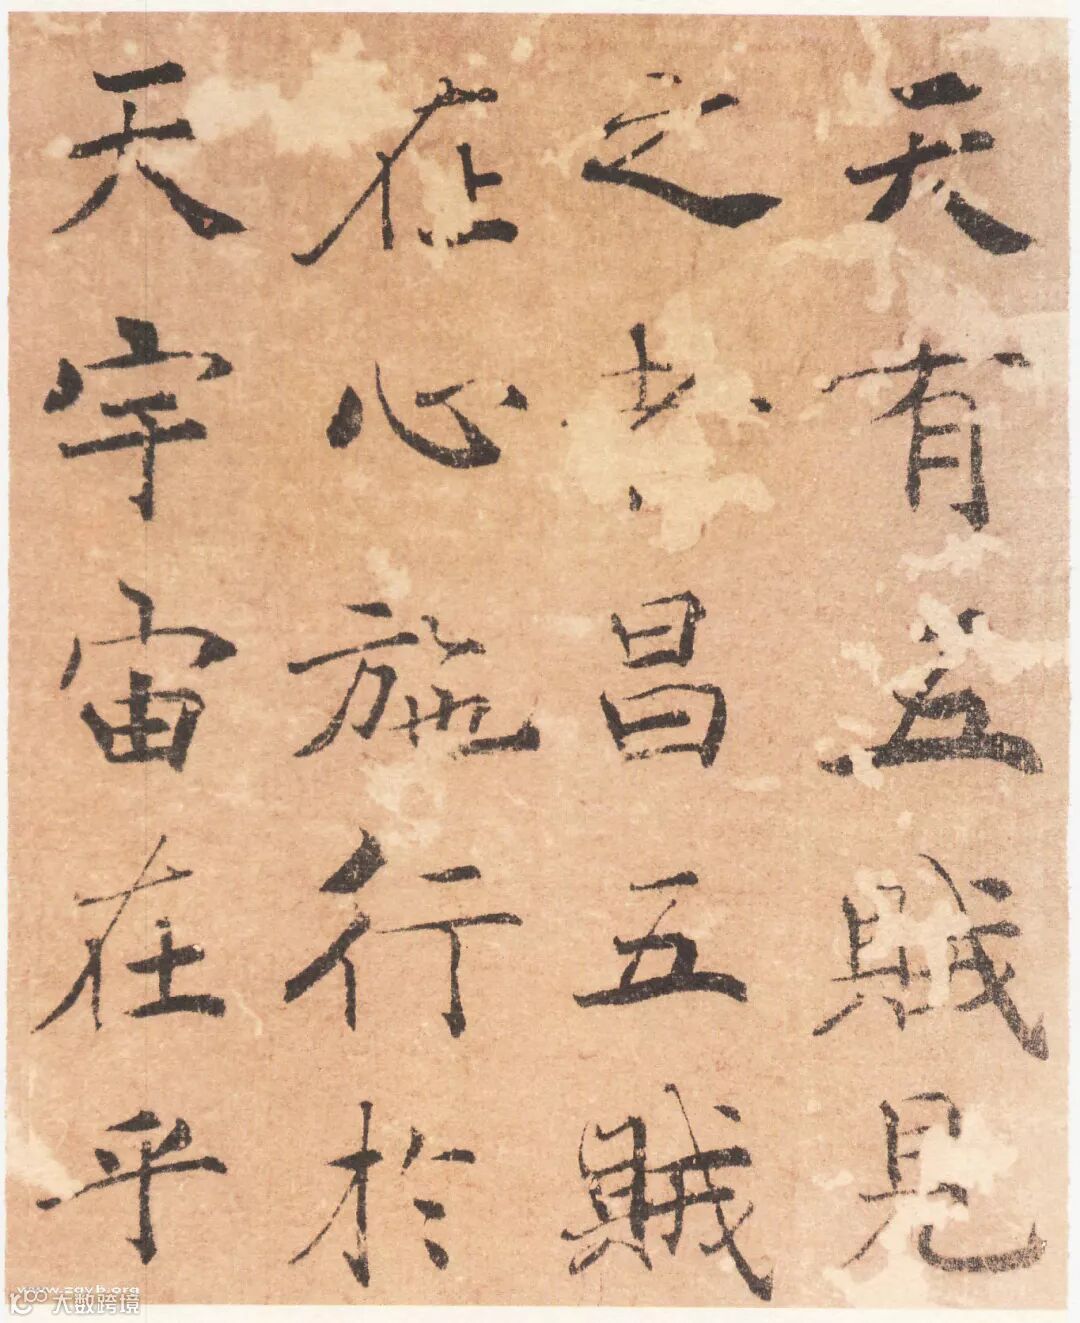 天有五賊見
之者昌五賊
在心施行於
天宇宙在乎
大数跨境